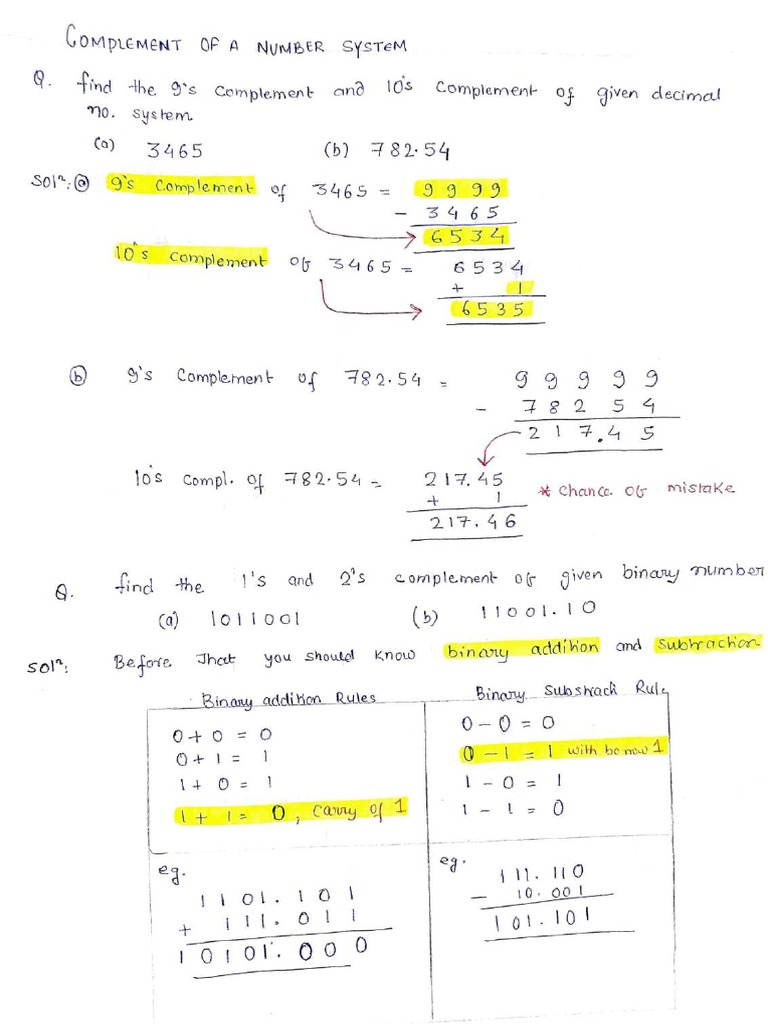 COMPLEMENT OF A NUMBER SYSTEM
Q. find the 9's complement and 10's complement of given decimal
no. system
(a) 3465 (b) 782.54
Solⁿ: ⓐ 9's complement of 3465 = 9 9 9 9
- 3 4 6 5
6 5 3 4
10's complement of 3465 = 6 5 3 4
+ 1
6 5 3 5
ⓑ 9's complement of 782.54 = 9 9 9 9 9
- 7 8 2 5 4
2 1 7 . 4 5
10's compl. of 782.54 = 217.45
+ 1
217.46
* Chance of mistake
Q. find the 1's and 2's complement of given binary number
(a) 1011001 (b) 11001.10
Solⁿ: Before that you should know binary addition and subtraction
Binary addition Rules
0 + 0 = 0
0 + 1 = 1
1 + 0 = 1
1 + 1 = 0, carry of 1
eg.
1101.101
+ 111.011
10101.000
Binary Substrack Rule
0 - 0 = 0
0 - 1 = 1 with borrow 1
1 - 0 = 1
1 - 1 = 0
eg.
111.110
- 10.001
101.101